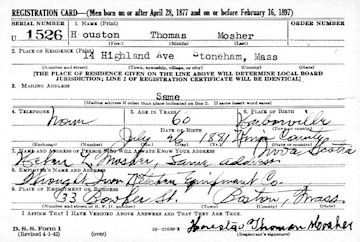 REGISTRATION CARD—(Men born on or after April 28, 1877 and on or before February 16, 1897)
SERIAL NUMBER 1. NAME (Print) ORDER NUMBER
U 1526 Houston Thomas Mosher
(First) (Middle) (Last)
2. PLACE OF RESIDENCE (Print)
14 Highland Ave Stoneham, Mass
(Number and street) (Town, township, village, or city) (County) (State)
[THE PLACE OF RESIDENCE GIVEN ON THE LINE ABOVE WILL DETERMINE LOCAL BOARD
JURISDICTION; LINE 2 OF REGISTRATION CERTIFICATE WILL BE IDENTICAL]
3. MAILING ADDRESS
Same
[Mailing address if other than place indicated on line 2. If same insert word same]
4. TELEPHONE 5. AGE IN YEARS 6. PLACE OF BIRTH
None 60
DATE OF BIRTH (Town or county)
July 1881 Kings County
Nova Scotia
(Exchange) (Number) (Mo.) (Day) (Yr.) (State or country)
7. NAME AND ADDRESS OF PERSON WHO WILL ALWAYS KNOW YOUR ADDRESS
Helen L. Mosher, Same address
8. EMPLOYER'S NAME AND ADDRESS
Wrought Iron Equipment Co.
9. PLACE OF EMPLOYMENT OR BUSINESS
133 Boston, Mass
(Number and street or R. F. D. number) (Town) (County) (State)
I AFFIRM THAT I HAVE VERIFIED ABOVE ANSWERS AND THAT THEY ARE TRUE.
D. S. S. Form 1
(Revised 4-1-42) (over)
Houston Thomas Mosher